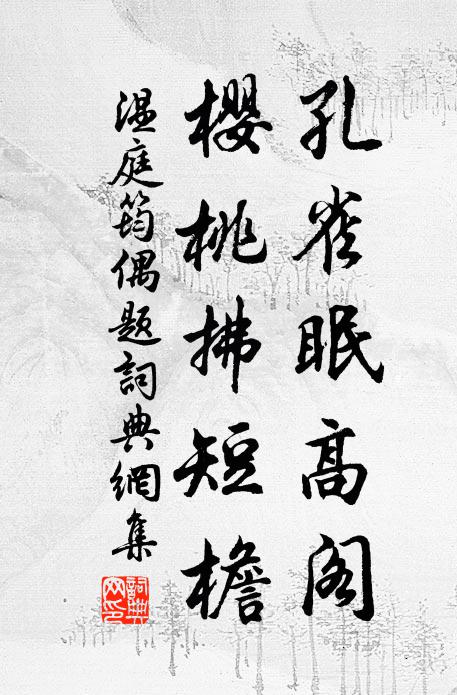 孔雀眠高阁
櫻桃拂短檐
温庭筠偶题詞典網集
詞典网印